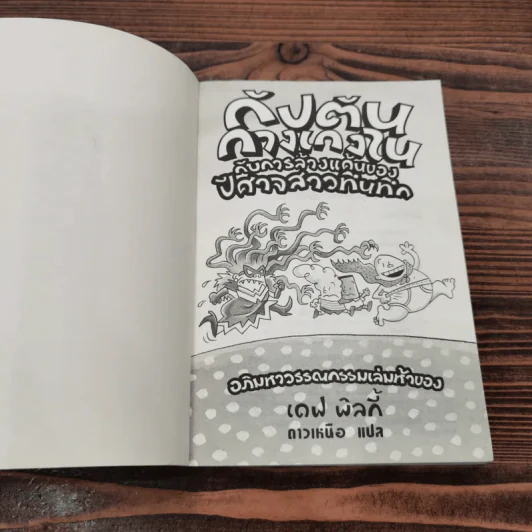 กัปตัน
กางเกงใน
กับการล้างแค้นของ
ปีศาจสาวถึนถึก
อภิมหาวรรณกรรมเล่มห้าของ
เดฟ พิลกี้
ดาวเหนือ แปล